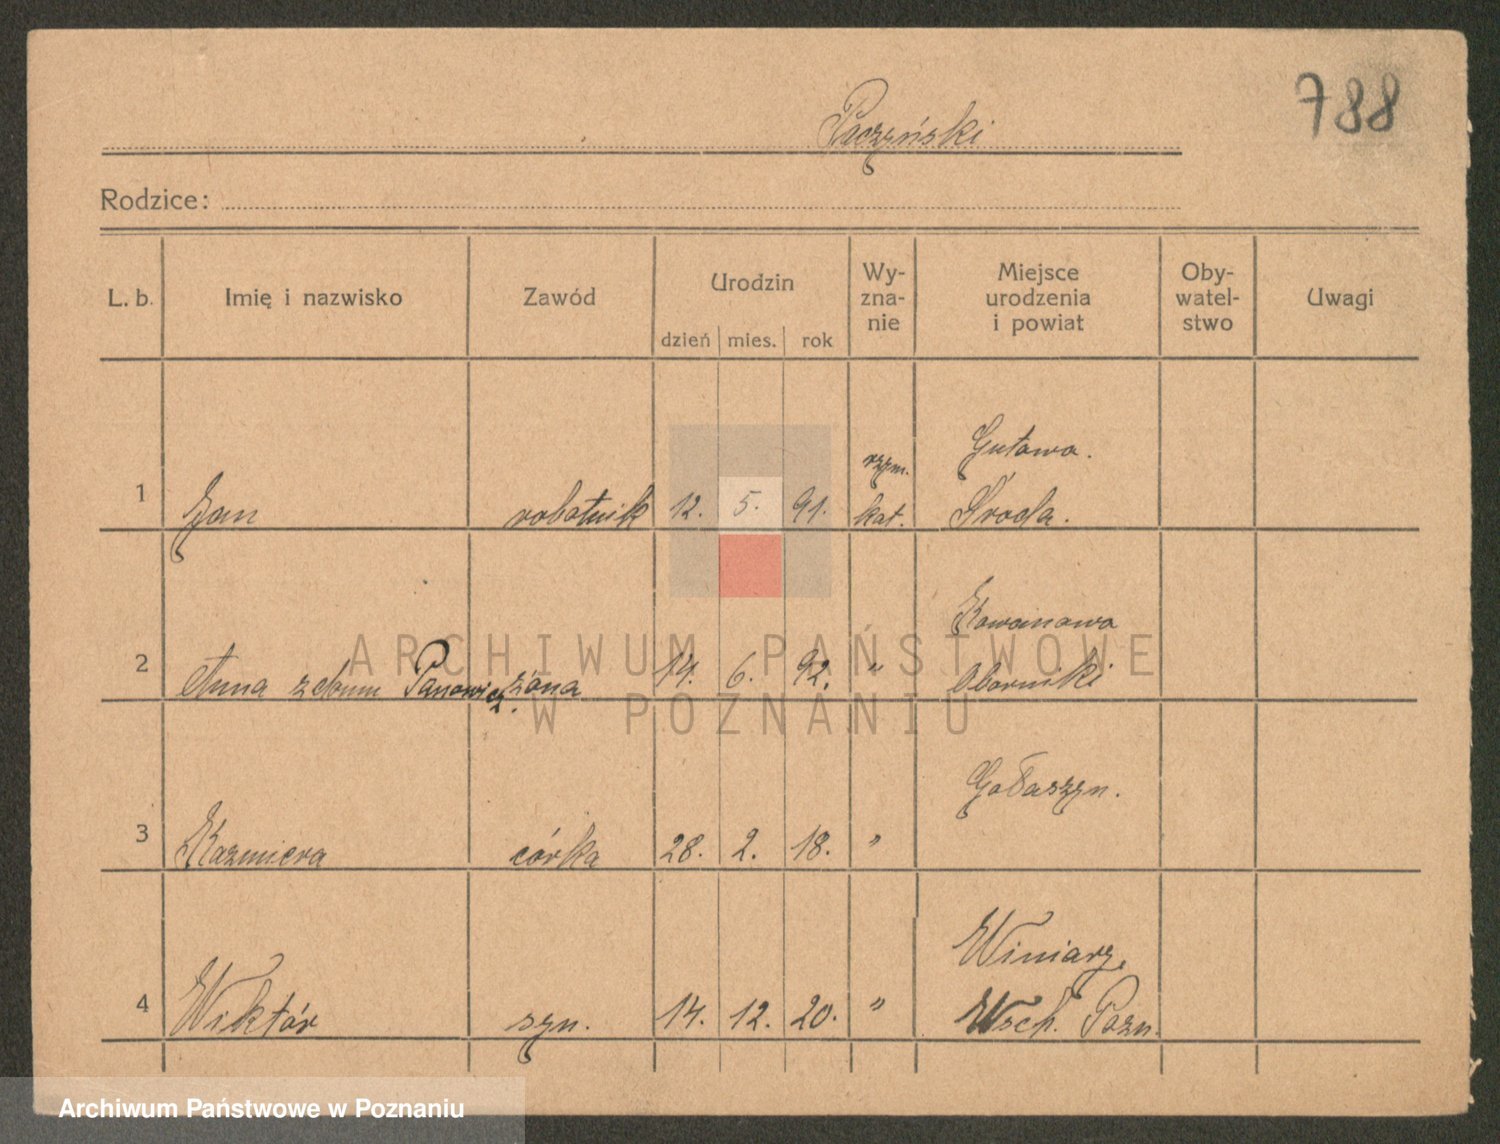 788
Paczyński
Rodzice:
L. b. Imię i nazwisko Zawód Urodzin dzień mies. rok Wy-zna-nie Miejsce urodzenia i powiat Oby-watel-stwo Uwagi
Gutowa.
rzym.
1 Jan robotnik 12. 5. 91. kat. Środa.
Kowanowo
2 Anna z domu Panowicz. żona 14. 6. 92. " Oborniki
Gołaszyn.
3 Kazmiera córka 28. 2. 18. "
Winiary,
4 Wiktór syn. 14. 12. 20. " Wsch. Pozn.
ARCHIWUM PAŃSTWOWE
W POZNANIU
Archiwum Państwowe w Poznaniu